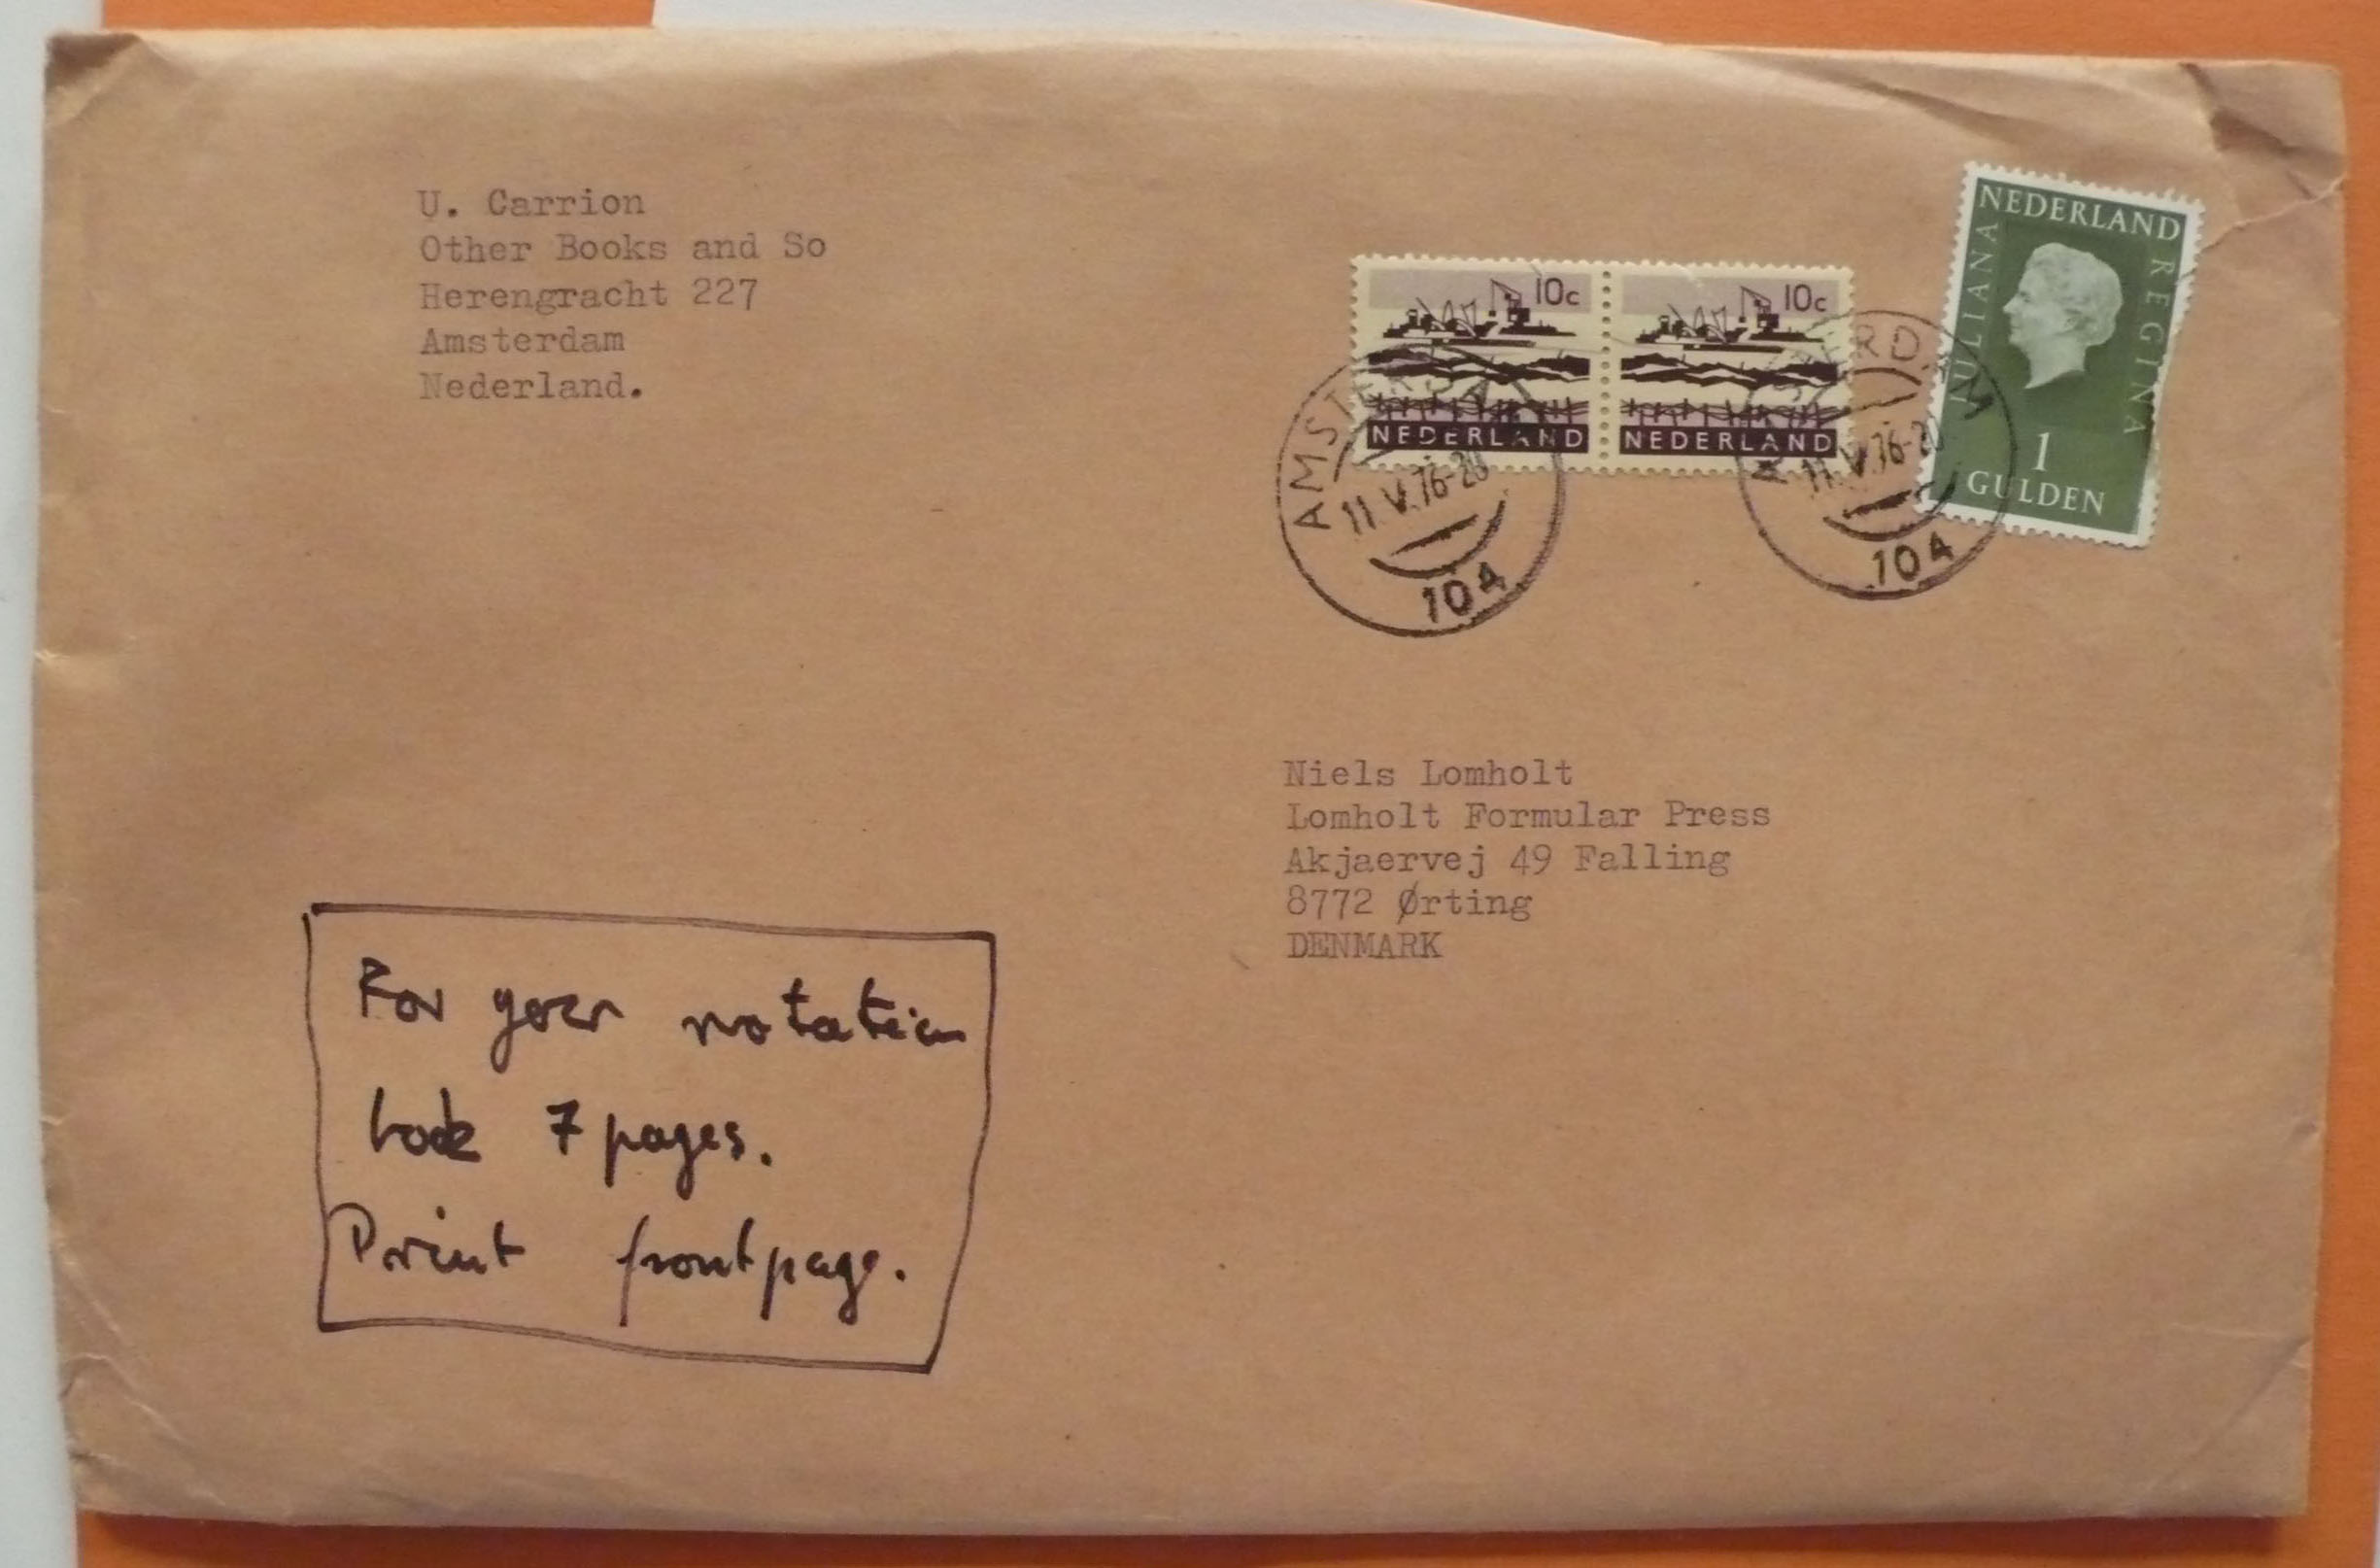 U. Carrion
Other Books and So
Herengracht 227
Amsterdam
Nederland.
10c
NEDERLAND
10c
NEDERLAND
NEDERLAND
JULIANA
REGINA
1
GULDEN
AMSTERDAM
11.V.76-20
104
AMSTERDAM
11.V.76-20
104
Niels Lomholt
Lomholt Formular Press
Akjaervej 49 Falling
8772 Ørting
DENMARK
For your notation
book 7 pages.
Print frontpage.